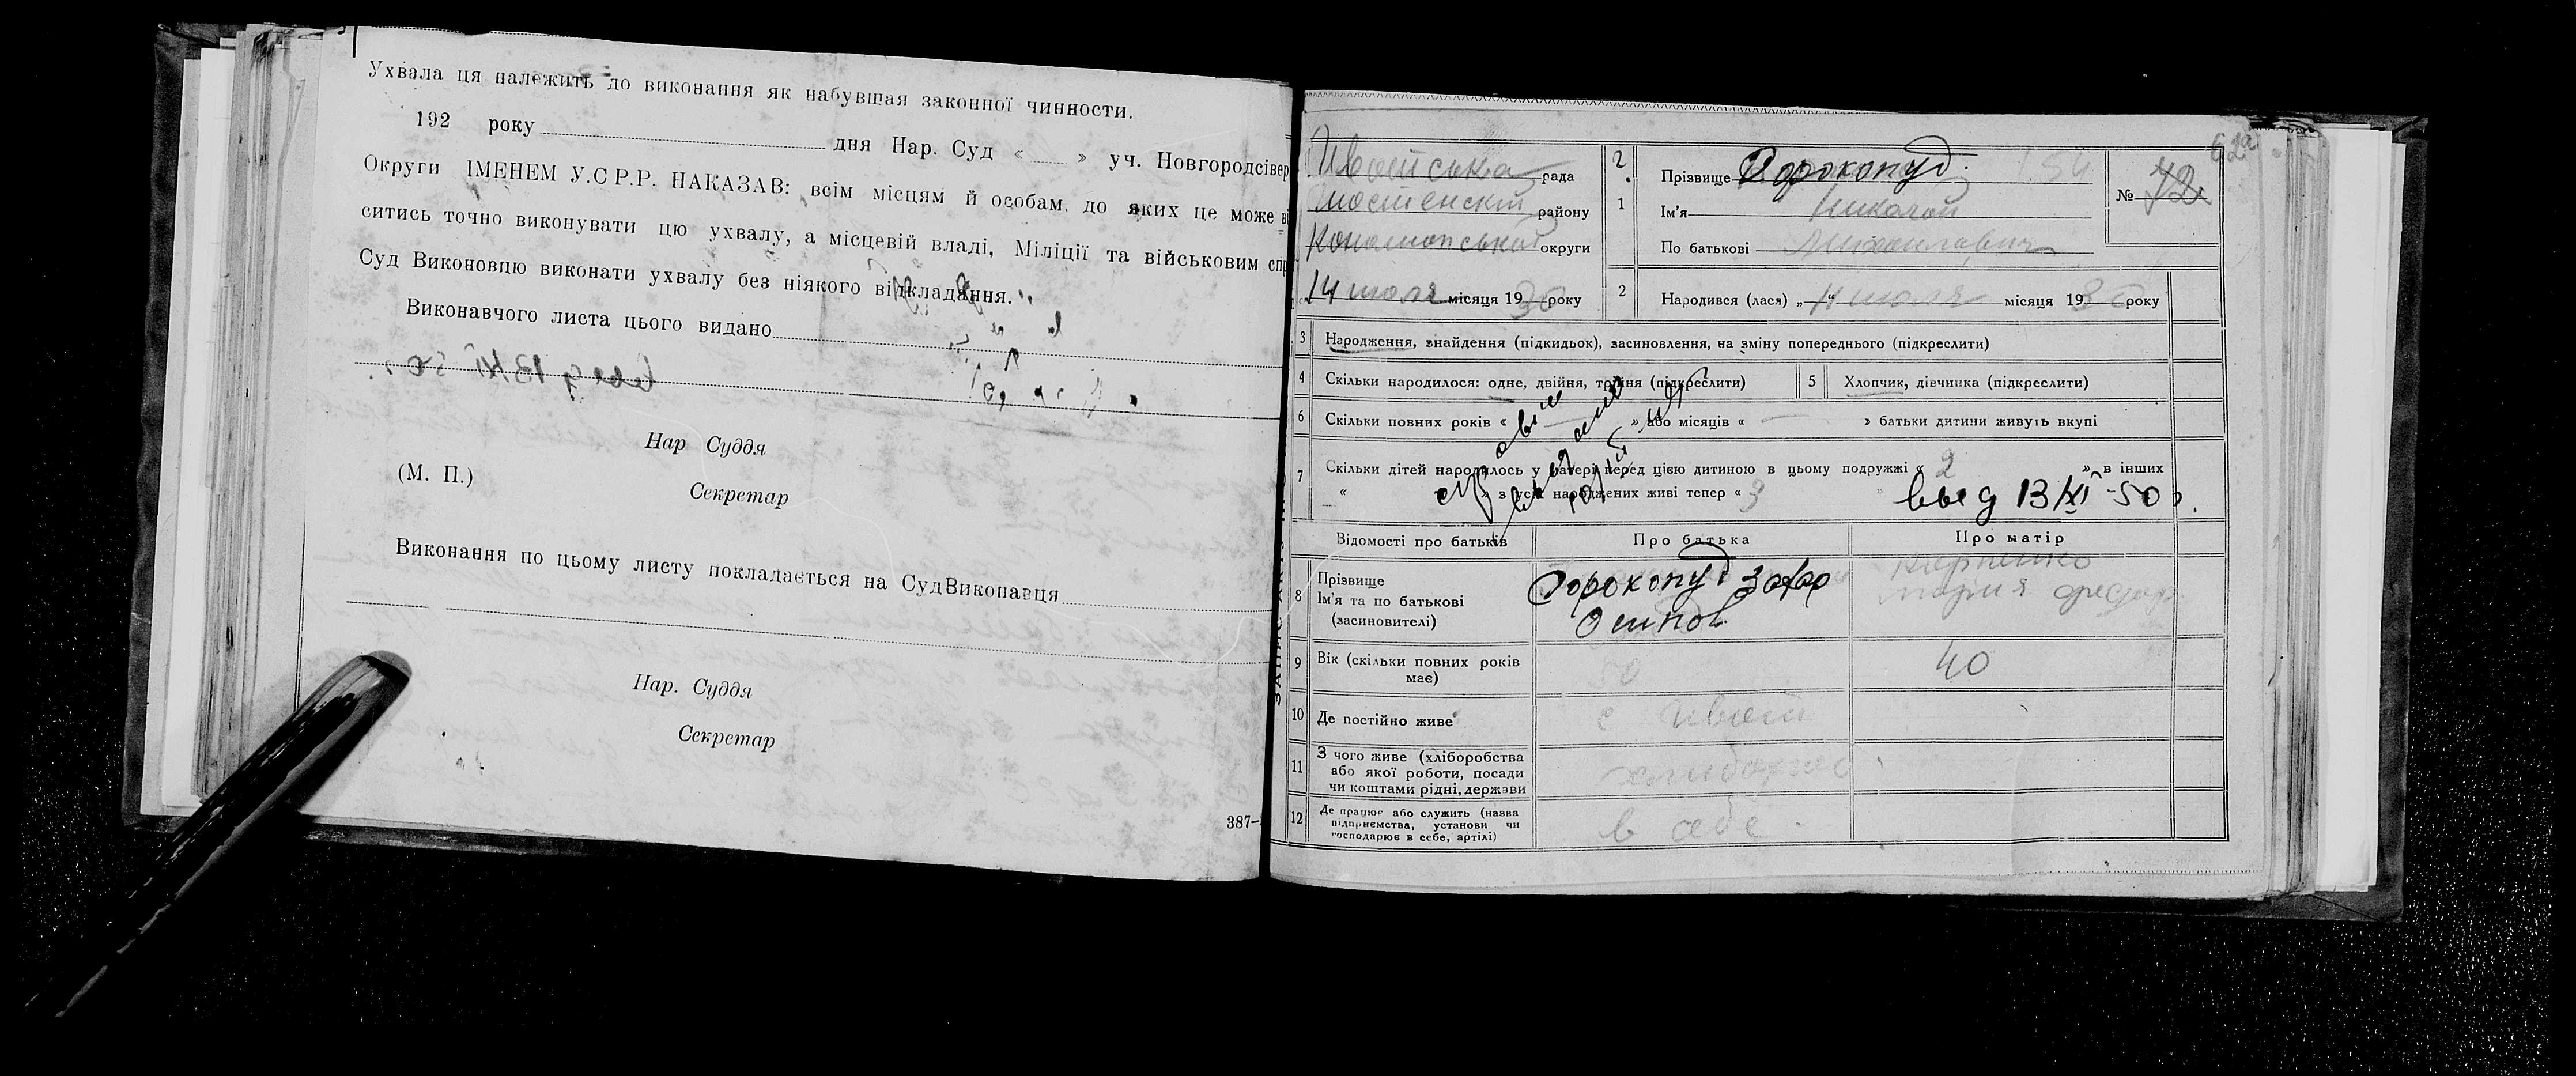 Ухвала ця належить до виконання як набувшая законної чинности.
192 року дня Нар. Суд « » уч. Новгородсівер
Округи ІМЕНЕМ У.С Р.Р. НАКАЗАВ: всім місцям й особам, до яких це може ві
ситись точно виконувати цю ухвалу, а місцевій владі, Міліції та військовим спр
Суд Виконовцю виконати ухвалу без ніякого відкладання.
Виконавчого листа цього видано
Нар Суддя
(М. П.)
Секретар
Виконання по цьому листу покладається на СудВиконавця
Нар. Суддя
Секретар
387-
рада
району
Конотопської округи
„14 июля місяця 1930 року
1 Прізвище Дорокопуд.
Ім'я Николай
По батькові Михайлович
№ 72
62а
2 Народився (лася) „4" июля місяця 1930 року
3 Народження, знайдення (підкидьок), засиновлення, на зміну попереднього (підкреслити)
4 Скільки народилося: одне, двійня, трійня (підкреслити)
5 Хлопчик, дівчинка (підкреслити)
6 Скільки повних років « » або місяців « » батьки дитини живуть вкупі
7 Скільки дітей народилось у матері перед цією дитиною в цьому подружжі « 2 » в інших
« » з усіх народжених живі тепер « 3 »
13/XI-50
Відомості про батьків
Про батька
Про матір
8 Прізвище
Ім'я та по батькові
(засиновителі)
Дорокопуд Захар
Осипов.
Карпенко
Мария Федор
9 Вік (скільки повних років
має)
50
40
10 Де постійно живе
с Ивот
11 З чого живе (хліборобства
або якої роботи, посади
чи коштами рідні, держави
12 Де працює або служить (назва
підприємства, установи чи
господарює в себе, артілі)
в себе.